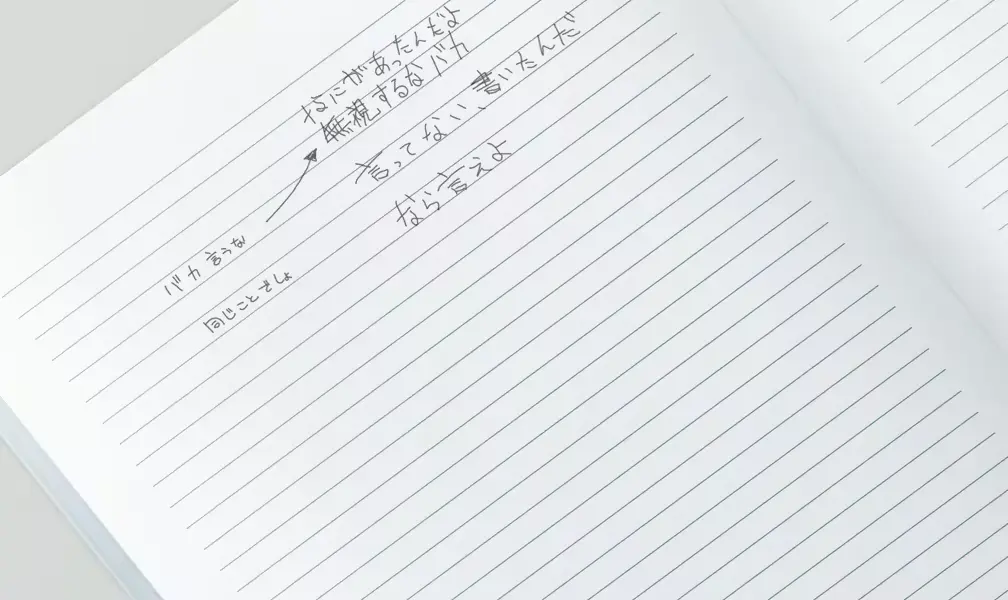 なにがあったんだよ
無視するなバカ
バカ言うな
言ってない、書いたんだ
同じことでしょ
なら言えよ